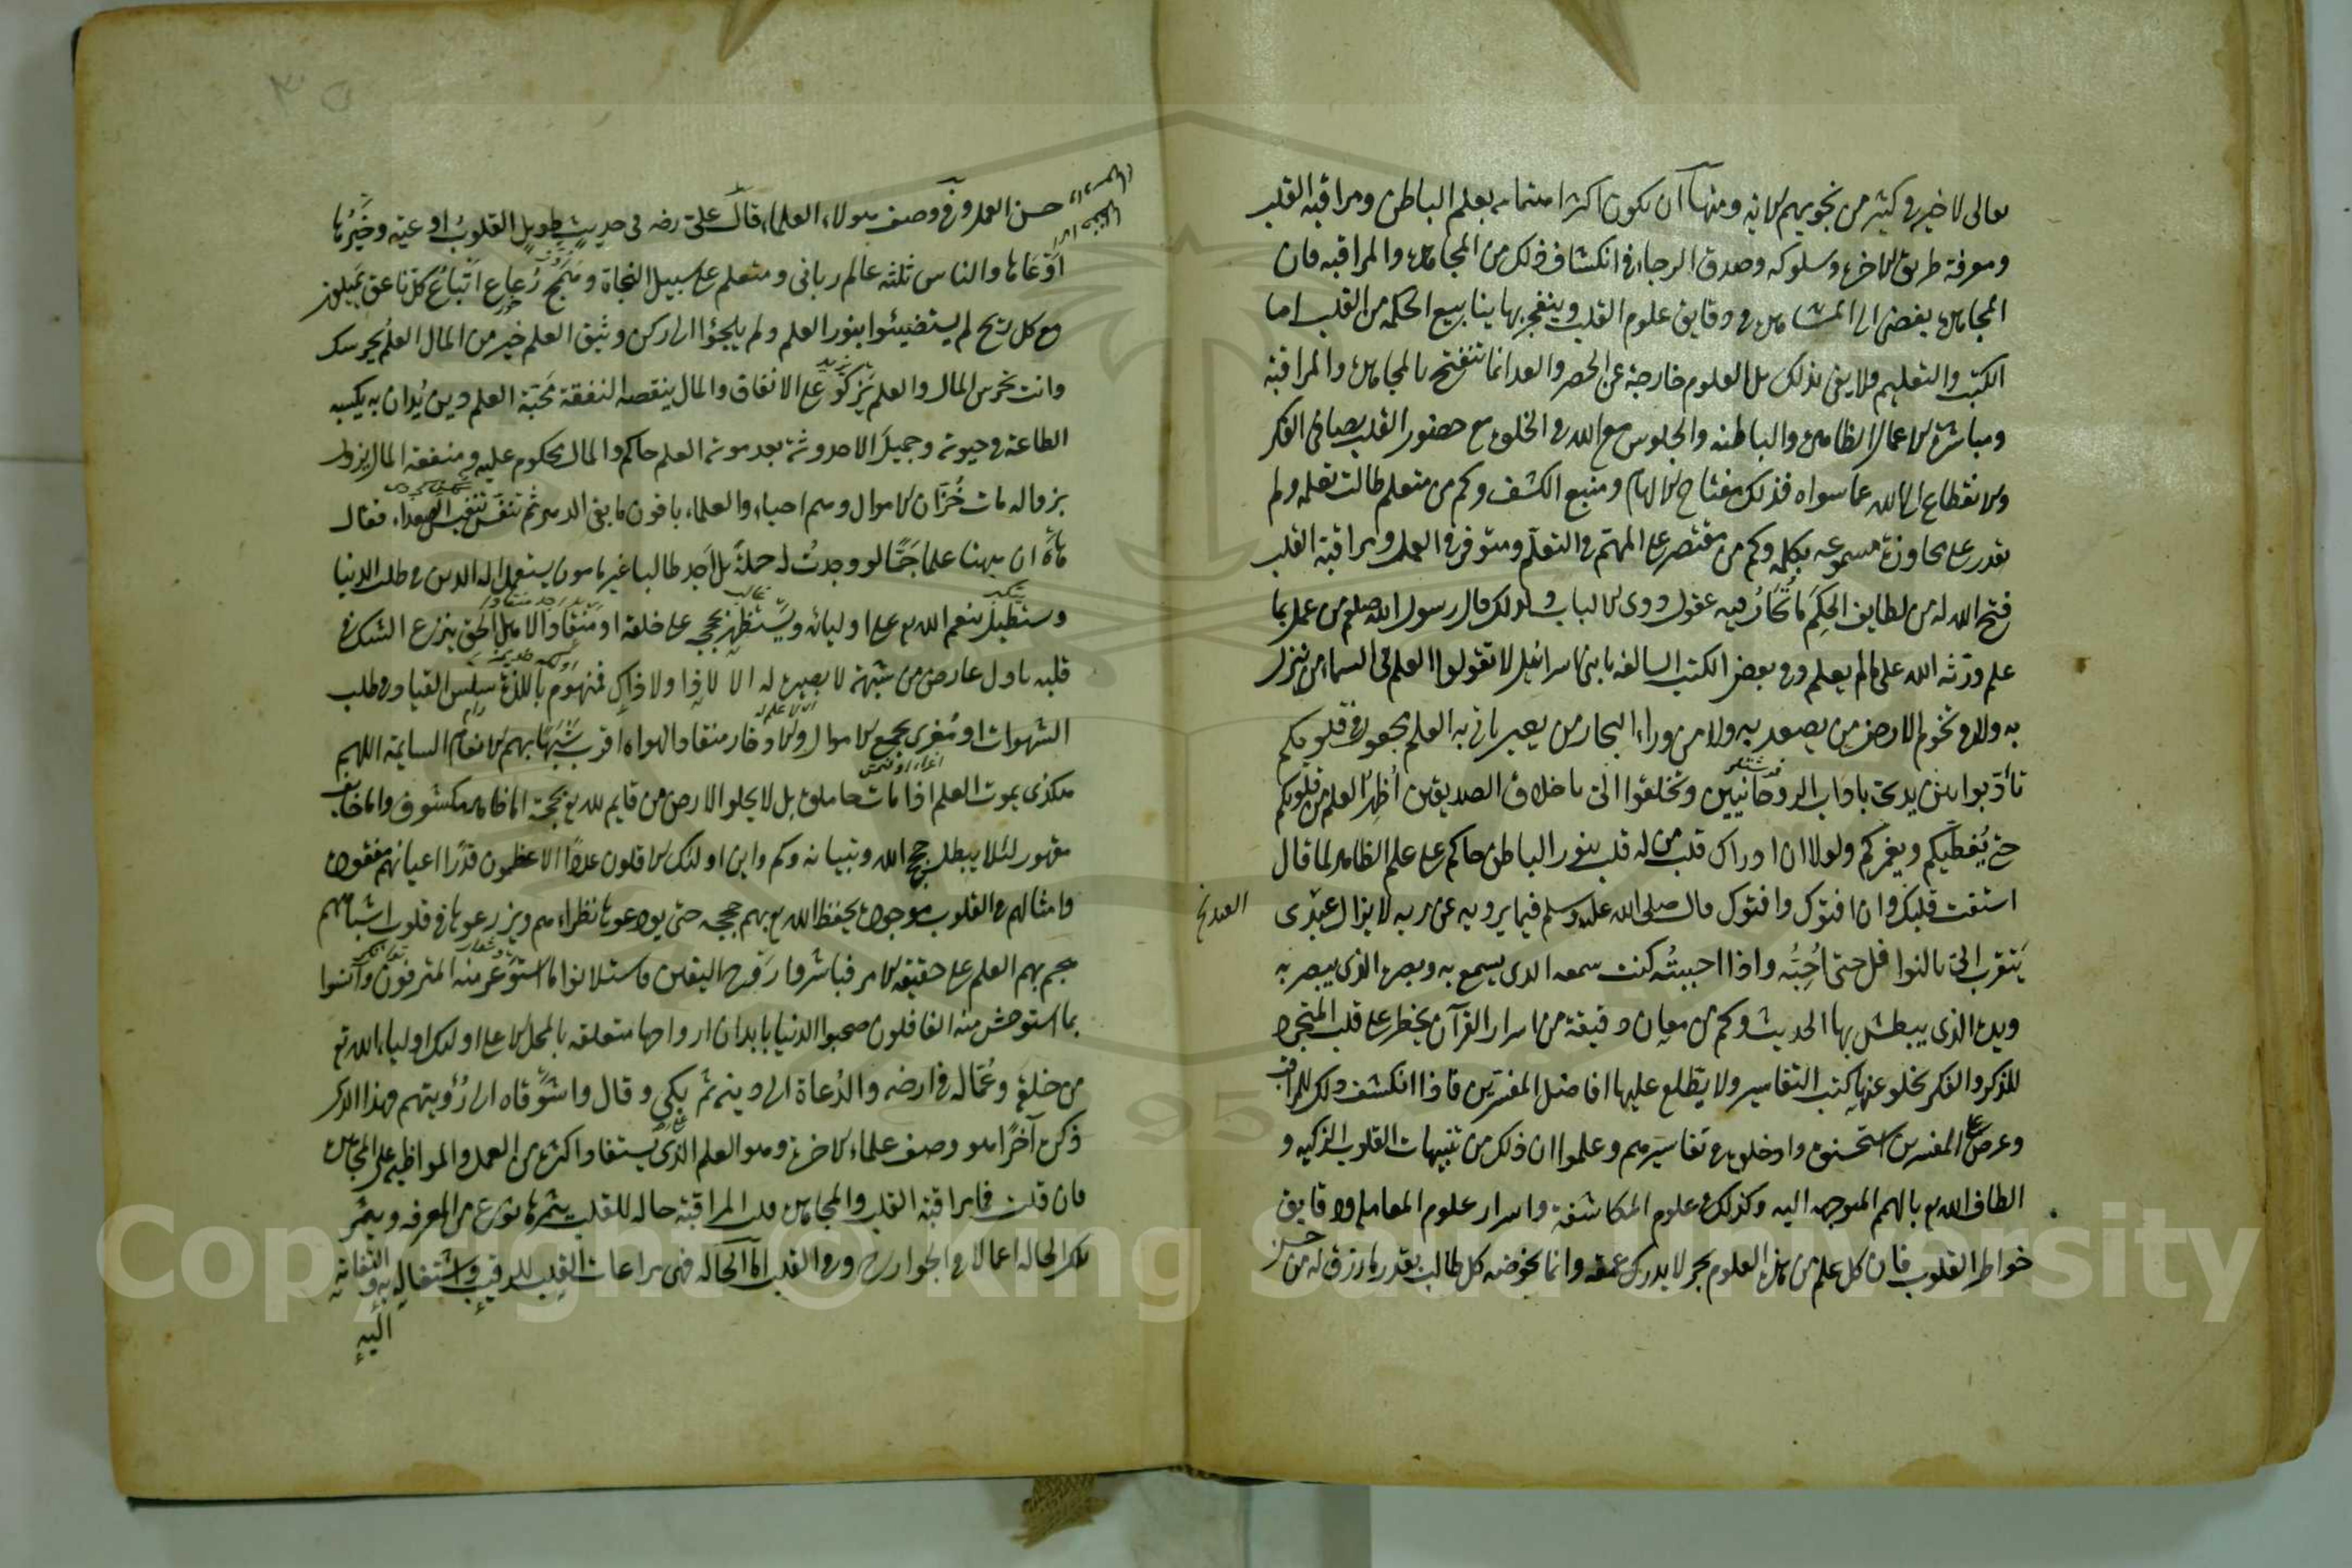 تعالى لا خير في كثير من نجويهم الآية ومنها أن يكون اكثر اهتمامه بعلم الباطن ومراقبة القلب
ومعرفة طريق الاخرة وسلوكه وصدق الرجاء في انكشاف ذلك من المجاهدة والمراقبة فان
المجاهدة يفضى الى المشاهدة في دقايق علوم القلب وينفجر بها ينابيع الحكمة من القلب اما
الكتب والتعليم فلا يفى بذلك بل العلوم خارجة عن الحصر والعد انما تنفتح بالمجاهدة والمراقبة
ومباشرة الاعمال الظاهرة والباطنة والجلوس مع الله في الخلوة مع حضور القلب بصافى الفكر
والانقطاع الى الله عما سواه فذلك مفتاح الالهام ومنبع الكشف وكم من متعلم طالت تعلمه ولم
يقدر على مجاوزة مسموعه بكلمة وكم من مقتصر على المهم في التعلم ومتوفر في العمل ومراقبة القلب
فتح الله له من لطايف الحكم ما تحار فيه عقول ذوى الالباب ولذلك قال رسول الله صلعم من عمل بما
علم ورثه الله علم ما لم يعلم وفي بعض الكتب السالفة يا بنى اسرائيل لا تقولوا العلم في السماء من ينزل
به ولا في تخوم الارض من يصعد به ولا من وراء البحار من يعبر يأتى به العلم مجعول في قلوبكم
تأدبوا بين يدى باداب الروحانيين وتخلقوا الى باخلاق الصديقين أظهر العلم من قلوبكم
حتى يغطيكم ويغمركم ولولا ان ادراك قلب من له قلب بنور الباطن حاكم على علم الظاهر لما قال
استفت قلبك وان افتوك وافتوك قال صلى الله عليه وسلم فيما يرويه عن ربه لا يزال عبدى
العبد نخ
يتقرب الى بالنوافل حتى أحبه واذا احببته كنت سمعه الذى يسمع به وبصره الذى يبصر به
ويده الذى يبطش بها الحديث وكم من معان دقيقة من اسرار القرآن يخطر على قلب المتجرد
للذكر والفكر يخلو عنها كتب التفاسير ولا يطلع عليها افاضل المفسرين فاذا انكشف ذلك للمراقب
وعرض على المفسرين استحسنوه وادخلوه في تفاسيرهم وعلموا ان ذلك من تنبيهات القلوب الزكية و
الطاف الله تع بالهمم المتوجهة اليه وكذلك في علوم المكاشفة واسرار علوم المعاملة ودقايق
خواطر القلوب فان كل علم من هذه العلوم بحر لا يدرك عمقه وانما يخوضه كل طالب بقدر ما رزق له من حسن
حسن العمل وفي وصف هولاء العلماء قال على رضه في حديث طويل القلوب اوعية وخيرها
أوعاها والناس ثلثة عالم ربانى ومتعلم على سبيل النجاة وهمج رعاع أتباع كل ناعق يميلون
مع كل ريح لم يستضيئوا بنور العلم ولم يلجؤا الى ركن وثيق العلم خير من المال العلم يحرسك
وانت تحرس المال والعلم يزكو على الانفاق والمال ينقصه النفقة محبة العلم دين يدان به يكسبه
الطاعة في حيوته وجميل الاحدوثة بعد موته العلم حاكم والمال محكوم عليه ومنفعة المال يزول
بزواله مات خزان الاموال وهم احياء والعلماء باقون ما بقى الدهر ثم تنفس تنفس الصعداء فقال
هاه ان ههنا علما جما لو وجدت له حملة بل أجد طالبا غير مامون يستعمل اله الدين في طلب الدنيا
ويستطيل بنعم الله تع على اوليائه ويستظهر بحججه على خلقه او منقادا لاهل الحق ينزرع الشك في
قلبه باول عارض من شبهة لا بصيرة له الا لا ذا ولا ذاك فمنهوم باللذة سلس القياد في طلب
الشهوات او مغرى بجمع الاموال والادخار منقاد الهواه اقرب شبها بهم الانعام السايمة اللهم
هكذى يموت العلم اذا مات حاملوه بل لا يخلو الارض من قايم لله تع بحجة اما ظاهر مكشوف واما خايف
مقهور لئلا يبطل حجج الله وتبيانه وكم واين اولئك الاقلون عددا الاعظمون قدرا اعيانهم مفقودة
وامثالهم في القلوب موجودة يحفظ الله تع بهم حججه حتى يودعوها نظراءهم ويزرعوها في قلوب اشباههم
هجم بهم العلم على حقيقة الامر فباشروا روح اليقين فاستلانوا ما استوعر منه المترفون وآنسوا
بما استوحش منه الغافلون صحبوا الدنيا بابدان ارواحها متعلقة بالمحل الاعلى اولئك اولياء الله تع
من خلقه وعماله في ارضه والدعاة الى دينه ثم بكى وقال واشوقاه الى رؤيتهم وهذا الذى
ذكره آخرا هو وصف علماء الاخرة وهو العلم الذى يستفاد اكثره من العمل والمواظبة على المجاهدة
فان قلت فما مراقبة القلب والمجاهدة قلت المراقبة حالة للقلب يثمرها نوع من المعرفة ويثمر
تلك الحالة اعمالا في الجوارح وفي القلب أما الحالة فهى مراعات القلب للرقيب واشتغاله به والتفاته
اليه